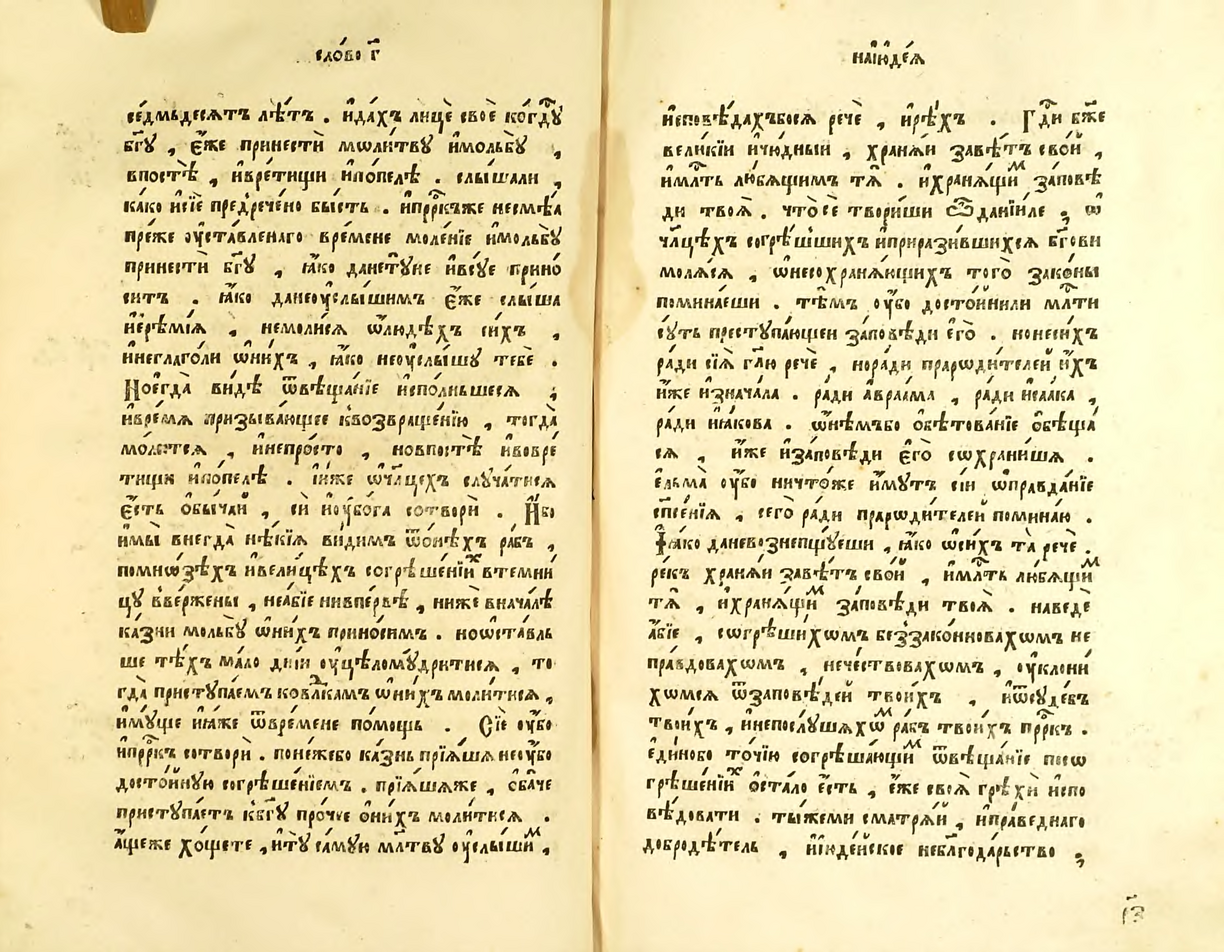 сло́во г҃
се́дмьдесѧтъ лѣ́тъ . и҆да́хъ лицѐ своѐ ко́гдⷭ҇ꙋ
бг҃ꙋ , є҆́же принестѝ мѡли́твꙋ и҆мольбꙋ̀ ,
впостѣ̀ , и҆вре́тищи и҆по́пелѣ . слы́шали ,
ка́ко и҆сїѐ пред̾рече́но бы́сть . и҆прⷪ҇ро́къже несмѣ́ѧ
пре́же оу҆ста́вленаго вре́мене моле́нїе и҆мольбꙋ̀
принестѝ бг҃ꙋ , ꙗ҆́ко данетꙋ́не и҆всꙋ́е прино́
ситъ . ꙗ҆́ко данеоу҆слы́шимъ є҆́же слы́ша
і҆еремі́ѧ , немоли́сѧ ѡ҆лю́дѣхъ си́хъ ,
и҆неглаго́ли ѡ҆ни́хъ , ꙗ҆́ко неоу҆слы́шꙋ тебѐ .
Ноегда̀ ви́дѣ ѿвѣща́нїе и҆спо́лньшеесѧ ;
и҆вре́мѧ призыва́ющее квозвраще́нїю , тогда̀
мо́лѧтсѧ , и҆непро́сто , новпостѣ̀ и҆вовре́
тищи и҆по́пелѣ . і҆и́же ѡ҆чл҃цехъ слꙋча́тисѧ
є҆́сть ѡ҆бы́чаи , сѝ и҆оу҆бо́га сотворѝ . И҆́бо
и҆мы̀ внегда̀ нѣ́кїѧ ви́димъ ѿо́нѣхъ ра́бъ ,
помнѡ́зѣхъ и҆вели́цѣхъ согрѣше́нїиⷯ втемни́
цꙋ вве́ржены , неа́бїе нивпе́рвѣ , ниже внача́лѣ
ка́зни мольбꙋ̀ ѡ҆ни́хъ прино́симъ . ноѡ҆ста́вль
ше тѣ́хъ ма́ло дні́и оу҆цѣломꙋ́дритисѧ , то
гда̀ пристꙋпа́емъ ковлⷣкамъ ѡ҆ни́хъ моли́тисѧ ,
и҆мꙋ́ще и҆ꙗ҆́же ѿвре́мене по́мощь . Сїѐ оу҆́бо
и҆прⷪ҇ро́къ сотворѝ . поне́жебо ка́знь прїѧ́шѧ неоу҆́бо
досто́йнꙋю согрѣше́нїемъ . прїѧ́шѧже , ѻ҆ба́че
пристꙋпа́етъ кбг҃ꙋ про́чее ѻ҆ни́хъ моли́тисѧ .
а҆́щеже хо́щете , и҆тꙋ̀ са́мꙋю мл҃твꙋ оу҆слы́шиⷨ ,
наі҆ю҆де́ѧ
и҆сповѣ́дахъбосѧ речѐ , и҆рѣ́хъ . Гдⷭ҇и бж҃е
вели́кїи и҆чю́дныи , хранѧ́и завѣ́тъ сво́й ,
и҆млⷭ҇ть лю́бѧщимъ тѧ̀ . и҆хранѧ́щиⷨ за́повѣ
ди твоѧ̀ . что̀се твори́ши Ѽ дані́иле , ѡ҆
чл҃цѣхъ согрѣ́шшихъ и҆прирази́вшихсѧ бг҃ови
молѧ́сѧ , ѡ҆несохранѧ́ющихъ того̀ зако́ны
помина́еши . тѣ́мъ оу҆́бо досто́инили млⷭ҇ти
сꙋ́ть престꙋпа́ющеи за́повѣди є҆го̀ . нонеси́хъ
ра́ди сїѧ̀ гл҃ю речѐ , нора́ди прарѡди́телей и҆́хъ
и҆́же и҆знача́ла . ра́ди а҆враа́ма , ра́ди і҆саа́ка ,
ра́ди і҆а́кова . ѡ҆не́мъбо ѻ҆бѣтова́нїе ѻ҆бѣща́
сѧ , и҆́же и҆за́повѣди є҆го̀ сѡхрани́шѧ .
Е҆льма̀ оу҆́бо ничто́же и҆́мꙋтъ сі́и ѡ҆правда́нїе
спⷭ҇е́нїѧ , сего̀ ра́ди прарѡди́телей помина́ю .
Ꙗ҆́ко даневознепщꙋ́еши , ꙗ҆́ко ѡ҆си́хъ та̀ речѐ .
ре́къ хранѧ́и завѣ́тъ сво́й , и҆млⷭ҇ть лю́бѧщиⷨ
тѧ̀ , и҆хранѧ́щиⷨ за́повѣди твоѧ̀ . наведѐ
а҆́бїе , сѡгрѣши́хѡмъ беззако́нновахѡмъ не
пра́вдовахѡмъ , нече́ствовахѡмъ , оу҆клони́
хѡмсѧ ѿза́повѣдей твои́хъ , и҆ѿсꙋ́дебъ
твои́хъ , и҆непослꙋ́шахѡⷨ ра́бъ твои́хъ прⷪ҇ро́къ .
є҆ди́нобо то́чїю согрѣша́ющиⷨ ѿвѣща́нїе посѡ
грѣше́нїиⷯ ѻ҆ста́ло є҆́сть , є҆́же своѧ̀ грѣхѝ и҆спо
вѣ́довати . ты́жеми сматрѧ́й , и҆пра́веднаго
добродѣ́тель , и҆і҆ю҆де́йское неблагода́рьство ;
г҃і